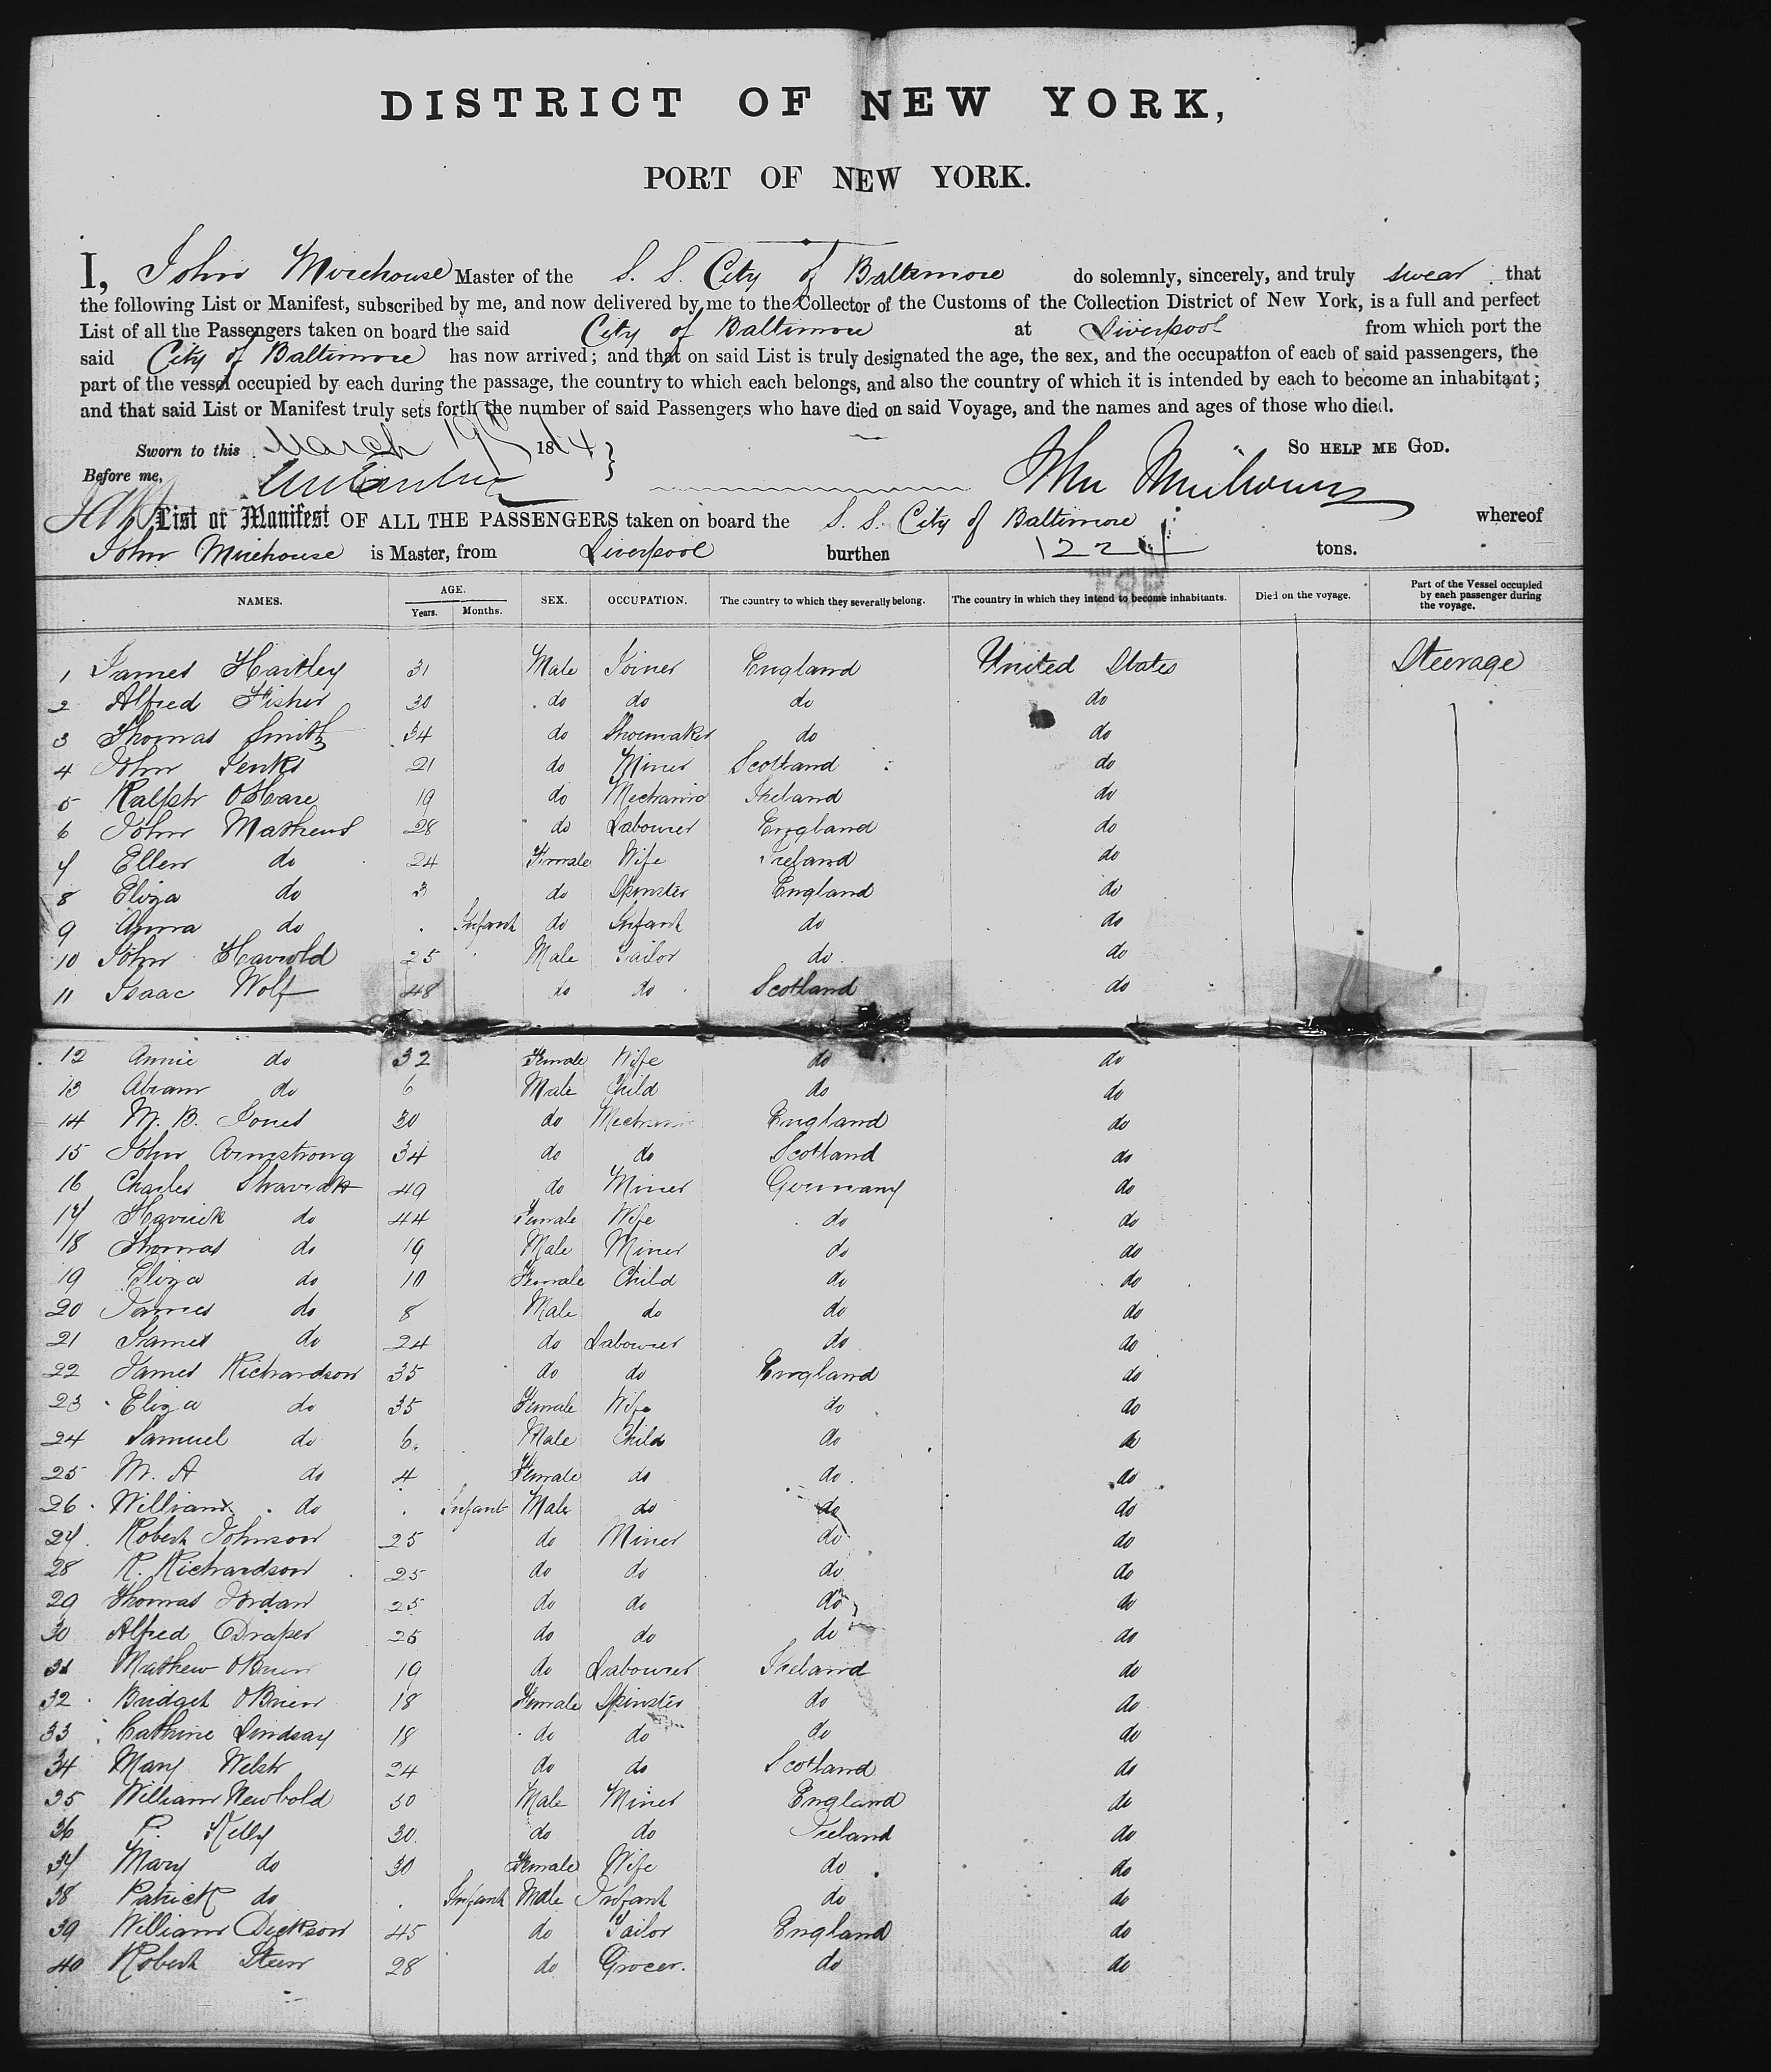 DISTRICT OF NEW YORK,
PORT OF NEW YORK.
I, John Mirehouse Master of the S. S. City of Baltimore do solemnly, sincerely, and truly swear that
the following List or Manifest, subscribed by me, and now delivered by me to the Collector of the Customs of the Collection District of New York, is a full and perfect
List of all the Passengers taken on board the said City of Baltimore at Liverpool from which port the
said City of Baltimore has now arrived; and that on said List is truly designated the age, the sex, and the occupatton of each of said passengers, the
part of the vessel occupied by each during the passage, the country to which each belongs, and also the country of which it is intended by each to become an inhabitant;
and that said List or Manifest truly sets forth the number of said Passengers who have died on said Voyage, and the names and ages of those who died.
Sworn to this March 19 1874 } SO HELP ME GOD.
Before me, John Mirehouse
List or Manifest OF ALL THE PASSENGERS taken on board the S. S. City of Baltimore whereof
John Mirehouse is Master, from Liverpool burthen 1224 tons.
NAMES. AGE. Years. Months. SEX. OCCUPATION. The country to which they severally belong. The country in which they intend to become inhabitants. Died on the voyage. Part of the Vessel occupied by each passenger during the voyage.
1 James Hartley 31 Male Joiner England United States Steerage
2 Alfred Fisher 30 do do do do
3 Thomas Smith 34 do Shoemaker do do
4 John Jenks 21 do Miner Scotland do
5 Ralph OHare 19 do Mechanic Ireland do
6 John Mathews 28 do Labourer England do
7 Ellen do 24 Female Wife Ireland do
8 Eliza do 3 do Spinster England do
9 Anna do Infant do Infant do do
10 John Harrold 25 Male Tailor do do
11 Isaac Wolf 48 do do Scotland do
12 Annie do 32 Female Wife do do
13 Abram do 6 Male Child do do
14 M. B. Jones 30 do Mechanic England do
15 John Armstrong 34 do do Scotland do
16 Charles 49 do Miner Germany do
17 do 44 Female Wife do do
18 Thomas do 19 Male Miner do do
19 Eliza do 10 Female Child do do
20 James do 8 Male do do do
21 James do 24 do Labourer do do
22 James Richardson 35 do do England do
23 Eliza do 35 Female Wife do do
24 Samuel do 6 Male Child do do
25 M. A do 4 Female do do do
26 William do Infant Male do do do
27 Robert Johnson 25 do Miner do do
28 R. Richardson 25 do do do do
29 Thomas Jordan 25 do do do do
30 Alfred Draper 25 do do do do
31 Mathew OBrien 19 do Labourer Ireland do
32 Bridget OBrien 18 Female Spinster do do
33 Cathrine Lindsay 18 do do do do
34 Mary Welsh 24 do do Scotland do
35 William Newbold 30 Male Miner England do
36 P. Kelly 30 do do Ireland do
37 Mary do 30 Female Wife do do
38 Patrick do Infant Male Infant do do
39 William Dickson 45 do Tailor England do
40 Robert Steen 28 do Grocer. do do